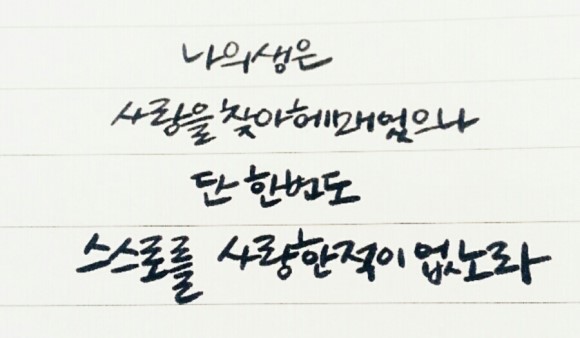 나의생은
사랑을 찾아헤매었으나
단 한번도
스스로를 사랑한적이 없노라